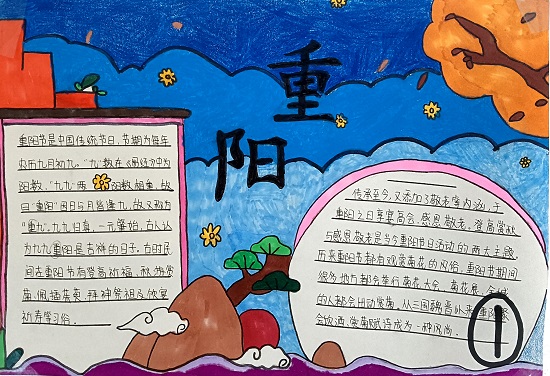 重
阳
重阳节是中国传统节日,节期为每年
农历九月初九。"九"数在《易经》中为
阳数,"九九"两阳数相重,故
曰"重阳"因日与月皆逢九,故又称为
"重九"。九九归真,一元肇始,古人认
为九九重阳是吉祥的日子。古时民
间在重阳节有登高祈福、秋游赏
菊、佩插茱萸、拜神祭祖及饮宴
祈寿等习俗。
传承至今,又添加了敬老等内涵,于
重阳之日享宴高会,感恩敬老。登高赏秋
与感恩敬老是当今重阳节日活动的两大主题。
历来重阳节都有观赏菊花的风俗,重阳节期间
很多地方都会举行菊花大会、菊花展,全城
的人都会出动赏菊。从三国魏晋以来重阳聚
会饮酒、赏菊赋诗成为一种风尚。
1